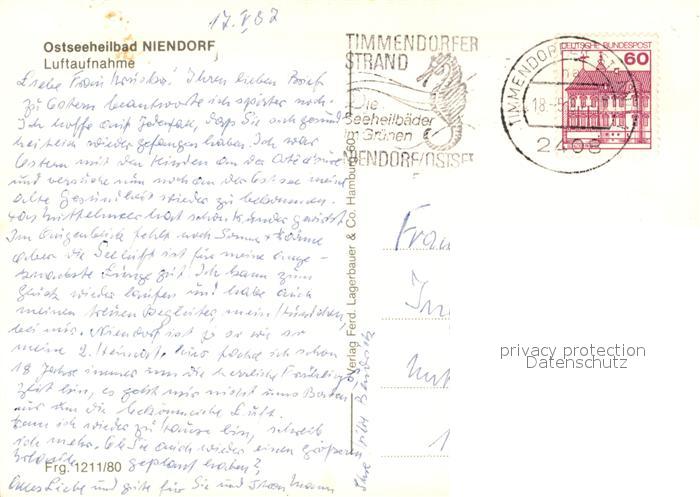 17.V.87
Ostseeheilbad NIENDORF
Luftaufnahme
Liebe Frau Ihren lieben Brief
zu Ostern beantworte ich später noch.
Ich hoffe auf jeden Fall, dass Sie sich gesund
heitlich wieder gefangen haben. Ich war
Ostern mit den Kindern an der
und versuche nun noch an der Ostsee meine
alte Gesundheit wieder zu bekommen.
Das Mittelmeer hat schon Wunder gewirkt.
Im Augenblick fehlt noch Sonne + Wärme
aber die Seeluft ist für meine ange-
knackste Lunge gut. Ich kann zum
Glück wieder laufen und habe auch
meinen treuen Begleiter, mein Hündchen,
bei mir. Niendorf ist ja so wie so
meine 2. Heimat. Hier ich schon
18 Jahre immer um die herrliche Frühlings
zeit bin, es geht mir nicht ums Baden
nur um die bekömmliche Luft.
Wenn ich wieder zu Hause bin, schreib
ich mehr. Ob Sie auch wieder einen größeren
geplant haben?
Alles Liebe und gute für Sie und Ihren Mann
Ihre
Frg. 1211/80
Verlag Ferd. Lagerbauer & Co. Hamburg 60
TIMMENDORFER
STRAND
Die
Seeheilbäder
im Grünen
NIENDORF/OSTSEE
TIMMENDORFER STR
18.-5.
2408
DEUTSCHE BUNDESPOST
60
Frau
privacy protection
Datenschutz